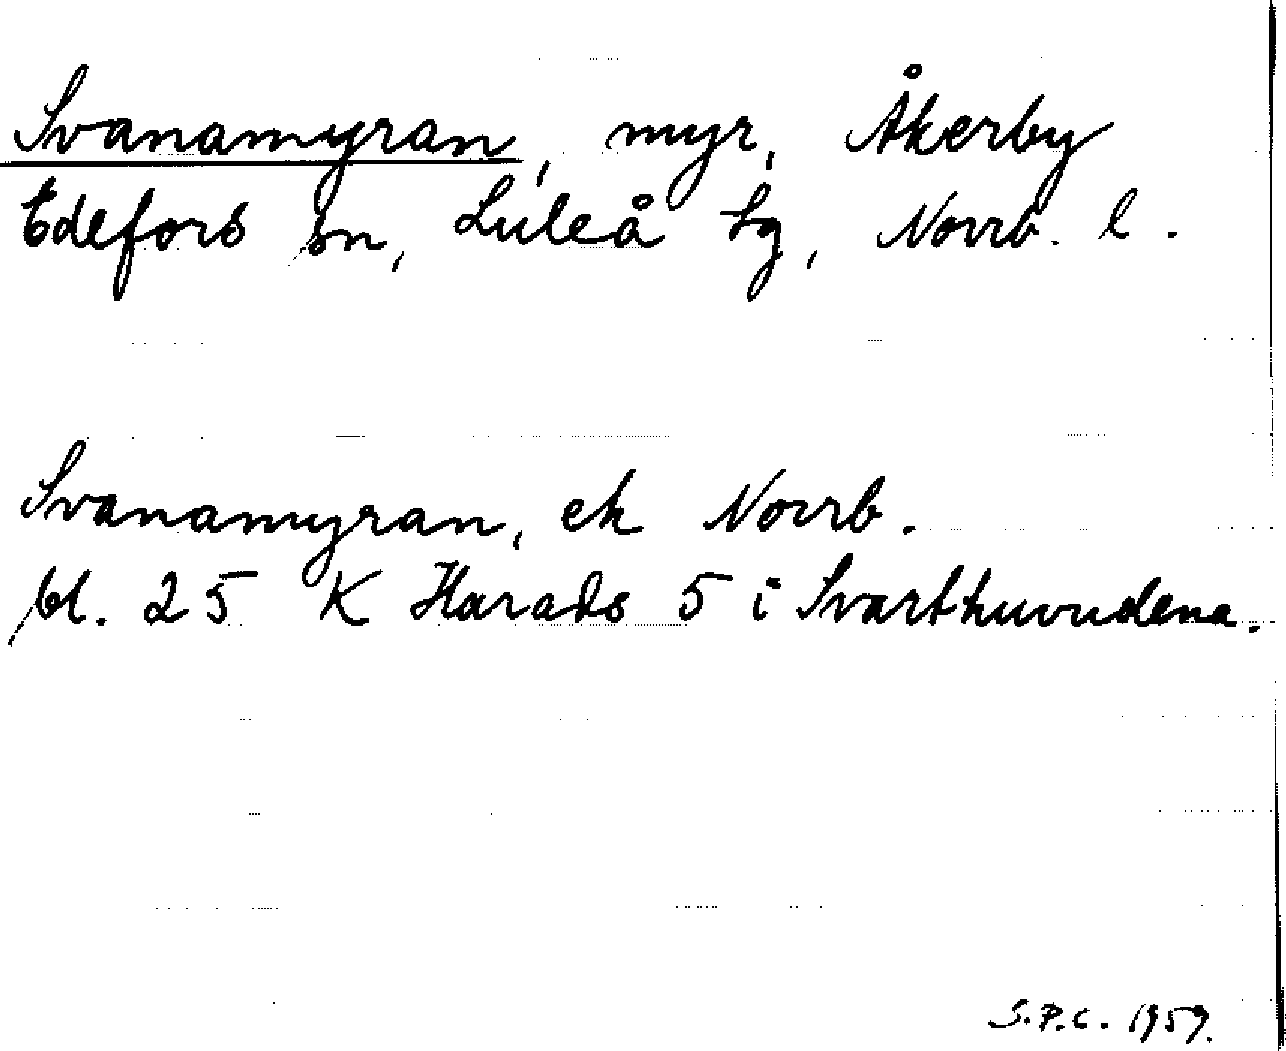 Svanamyran, myr, Åkerby
Edefors sn, Luleå tg, Norrb. l.
Svanamyran, ek Norrb.
bl. 25 K Harads 5 i Svarthuvudena.
S.P.C. 1959.